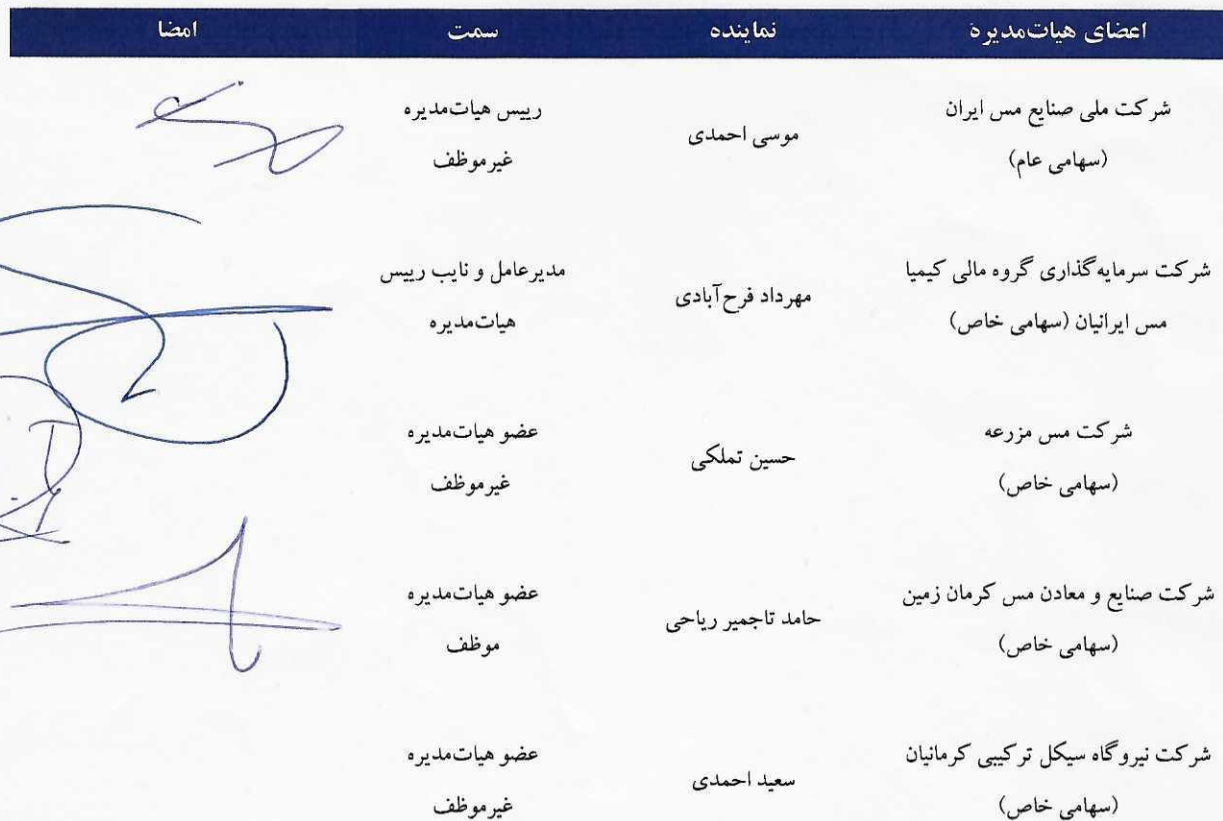 اعضای هیات‌مدیره نماینده سمت امضا
شرکت ملی صنایع مس ایران
(سهامی عام)
موسی احمدی
رییس هیات‌مدیره
غیرموظف
شرکت سرمایه‌گذاری گروه مالی کیمیا
مس ایرانیان (سهامی خاص)
مهرداد فرح‌آبادی
مدیرعامل و نایب رییس
هیات‌مدیره
شرکت مس مزرعه
(سهامی خاص)
حسین تملکی
عضو هیات‌مدیره
غیرموظف
شرکت صنایع و معادن مس کرمان زمین
(سهامی خاص)
حامد تاجمیر ریاحی
عضو هیات‌مدیره
موظف
شرکت نیروگاه سیکل ترکیبی کرمانیان
(سهامی خاص)
سعید احمدی
عضو هیات‌مدیره
غیرموظف